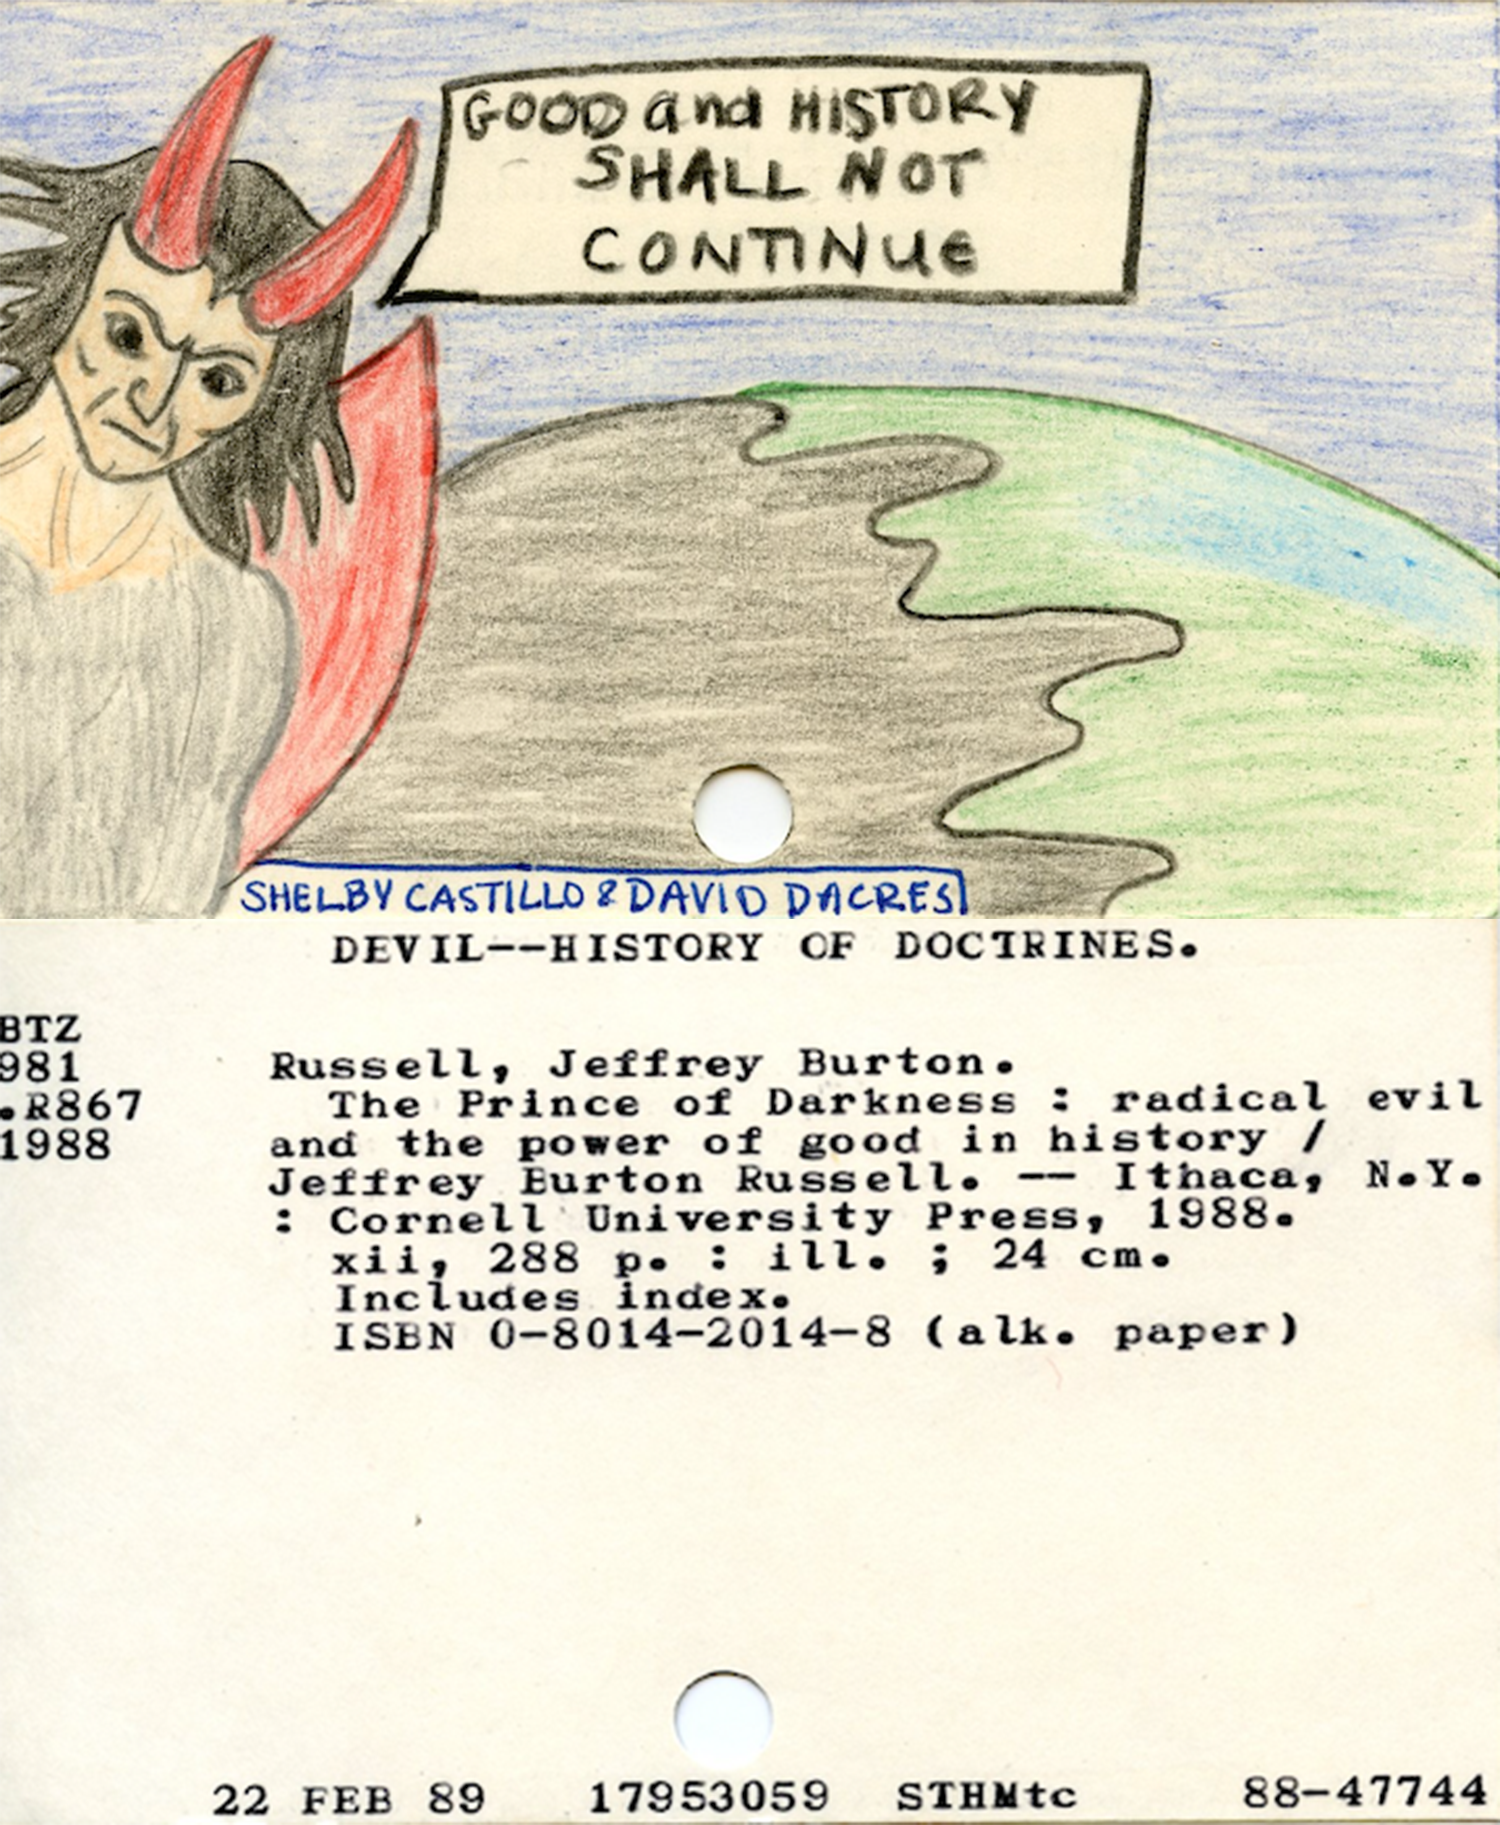 GOOD and HISTORY
SHALL NOT
CONTINUE
SHELBY CASTILLO & DAVID DACRES
DEVIL--HISTORY OF DOCTRINES.
BTZ
981
.R867
1988
Russell, Jeffrey Burton.
The Prince of Darkness : radical evil
and the power of good in history /
Jeffrey Burton Russell. -- Ithaca, N.Y.
: Cornell University Press, 1988.
xii, 288 p. : ill. ; 24 cm.
Includes index.
ISBN 0-8014-2014-8 (alk. paper)
22 FEB 89 17953059 STHMtc 88-47744